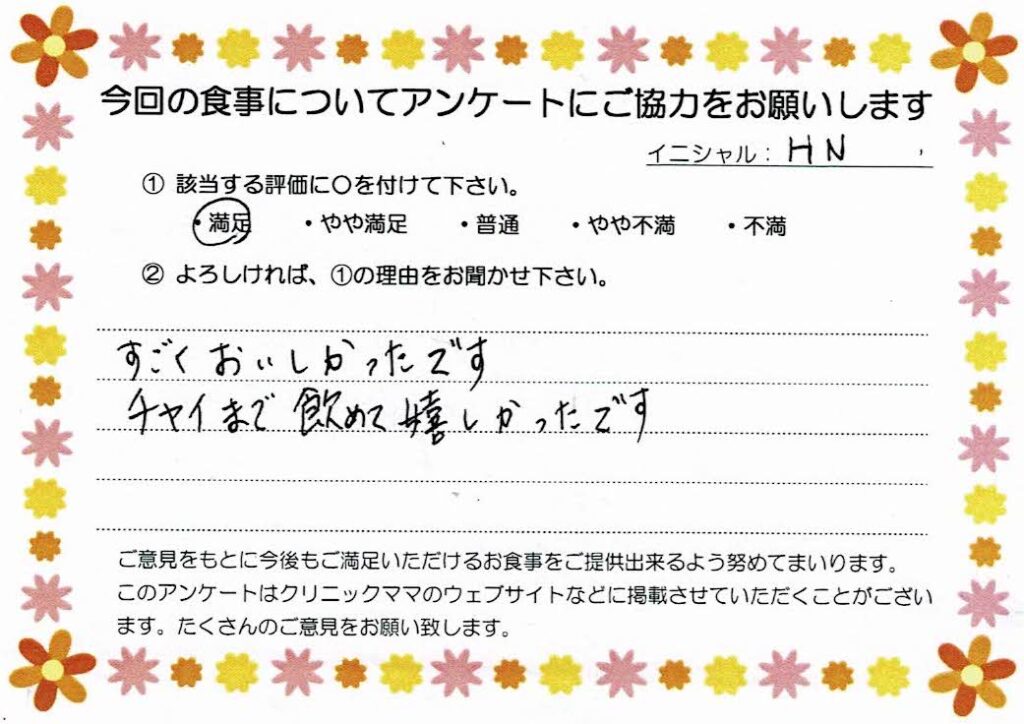 今回の食事についてアンケートにご協力をお願いします
イニシャル：HN
① 該当する評価に〇を付けて下さい。
・満足 ・やや満足 ・普通 ・やや不満 ・不満
② よろしければ、①の理由をお聞かせ下さい。
すごくおいしかったです
チャイまで飲めて嬉しかったです
ご意見をもとに今後もご満足いただけるお食事をご提供出来るよう努めてまいります。
このアンケートはクリニックママのウェブサイトなどに掲載させていただくことがござい
ます。たくさんのご意見をお願い致します。